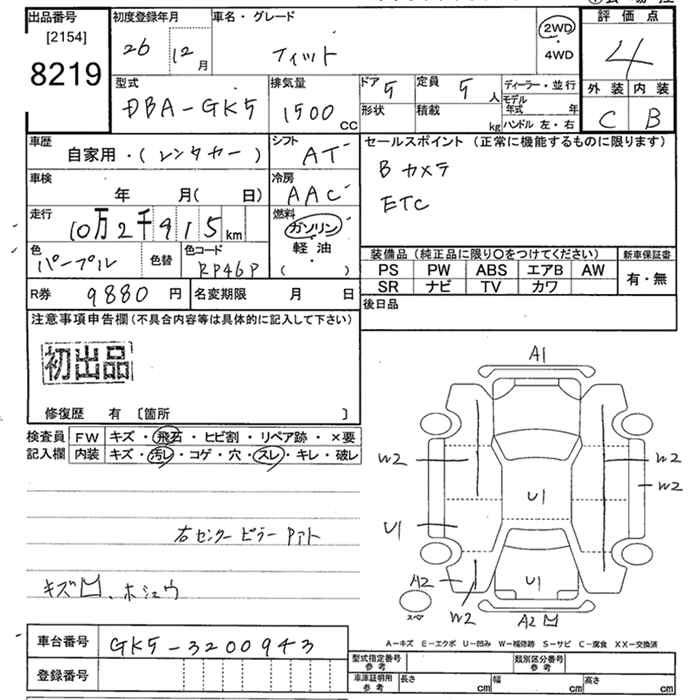 出品番号
[2154]
8219
初度登録年月
26 12月
車名・グレード
フィット
2WD
4WD
評価点
4
型式
DBA-GK5
排気量
1500 cc
ドア 5
定員 5 人
形状
積載 kg
ディーラー・並行
モデル年式 年
ハンドル 左・右
外装 内装
C B
車歴
自家用・(レンタカー)
シフト
AT
車検
年 月( 日)
冷房
AAC
走行
10万2千915km
燃料
ガソリン
軽油
( ・ )
色
パープル
色替
色コード
RP46P
R券 9880 円
名変期限 月 日
セールスポイント (正常に機能するものに限ります)
Bカメラ
ETC
装備品 (純正品に限り〇をつけてください)
新車保証書
PS PW ABS エアB AW
SR ナビ TV カワ
有・無
後日品
注意事項申告欄(不具合内容等は具体的に記入して下さい)
初出品
修復歴 有 〔箇所 〕
検査員記入欄
FW キズ・飛石・ヒビ割・リペア跡・×要
内装 キズ・汚レ・コゲ・穴・スレ・キレ・破レ
右センターピラー Pアト
キズ凹、ホシュウ
A1
W2
W2
W2
U1
U1
A2
W2
U1
A2凹
スペア
A-キズ E-エクボ U-凹み W-補修跡 S-サビ C-腐食 XX-交換済
車台番号 GK5-3200943
登録番号
型式指定番号参考
類別区分番号参考
車庫証明用参考
長さ cm
幅 cm
高さ cm